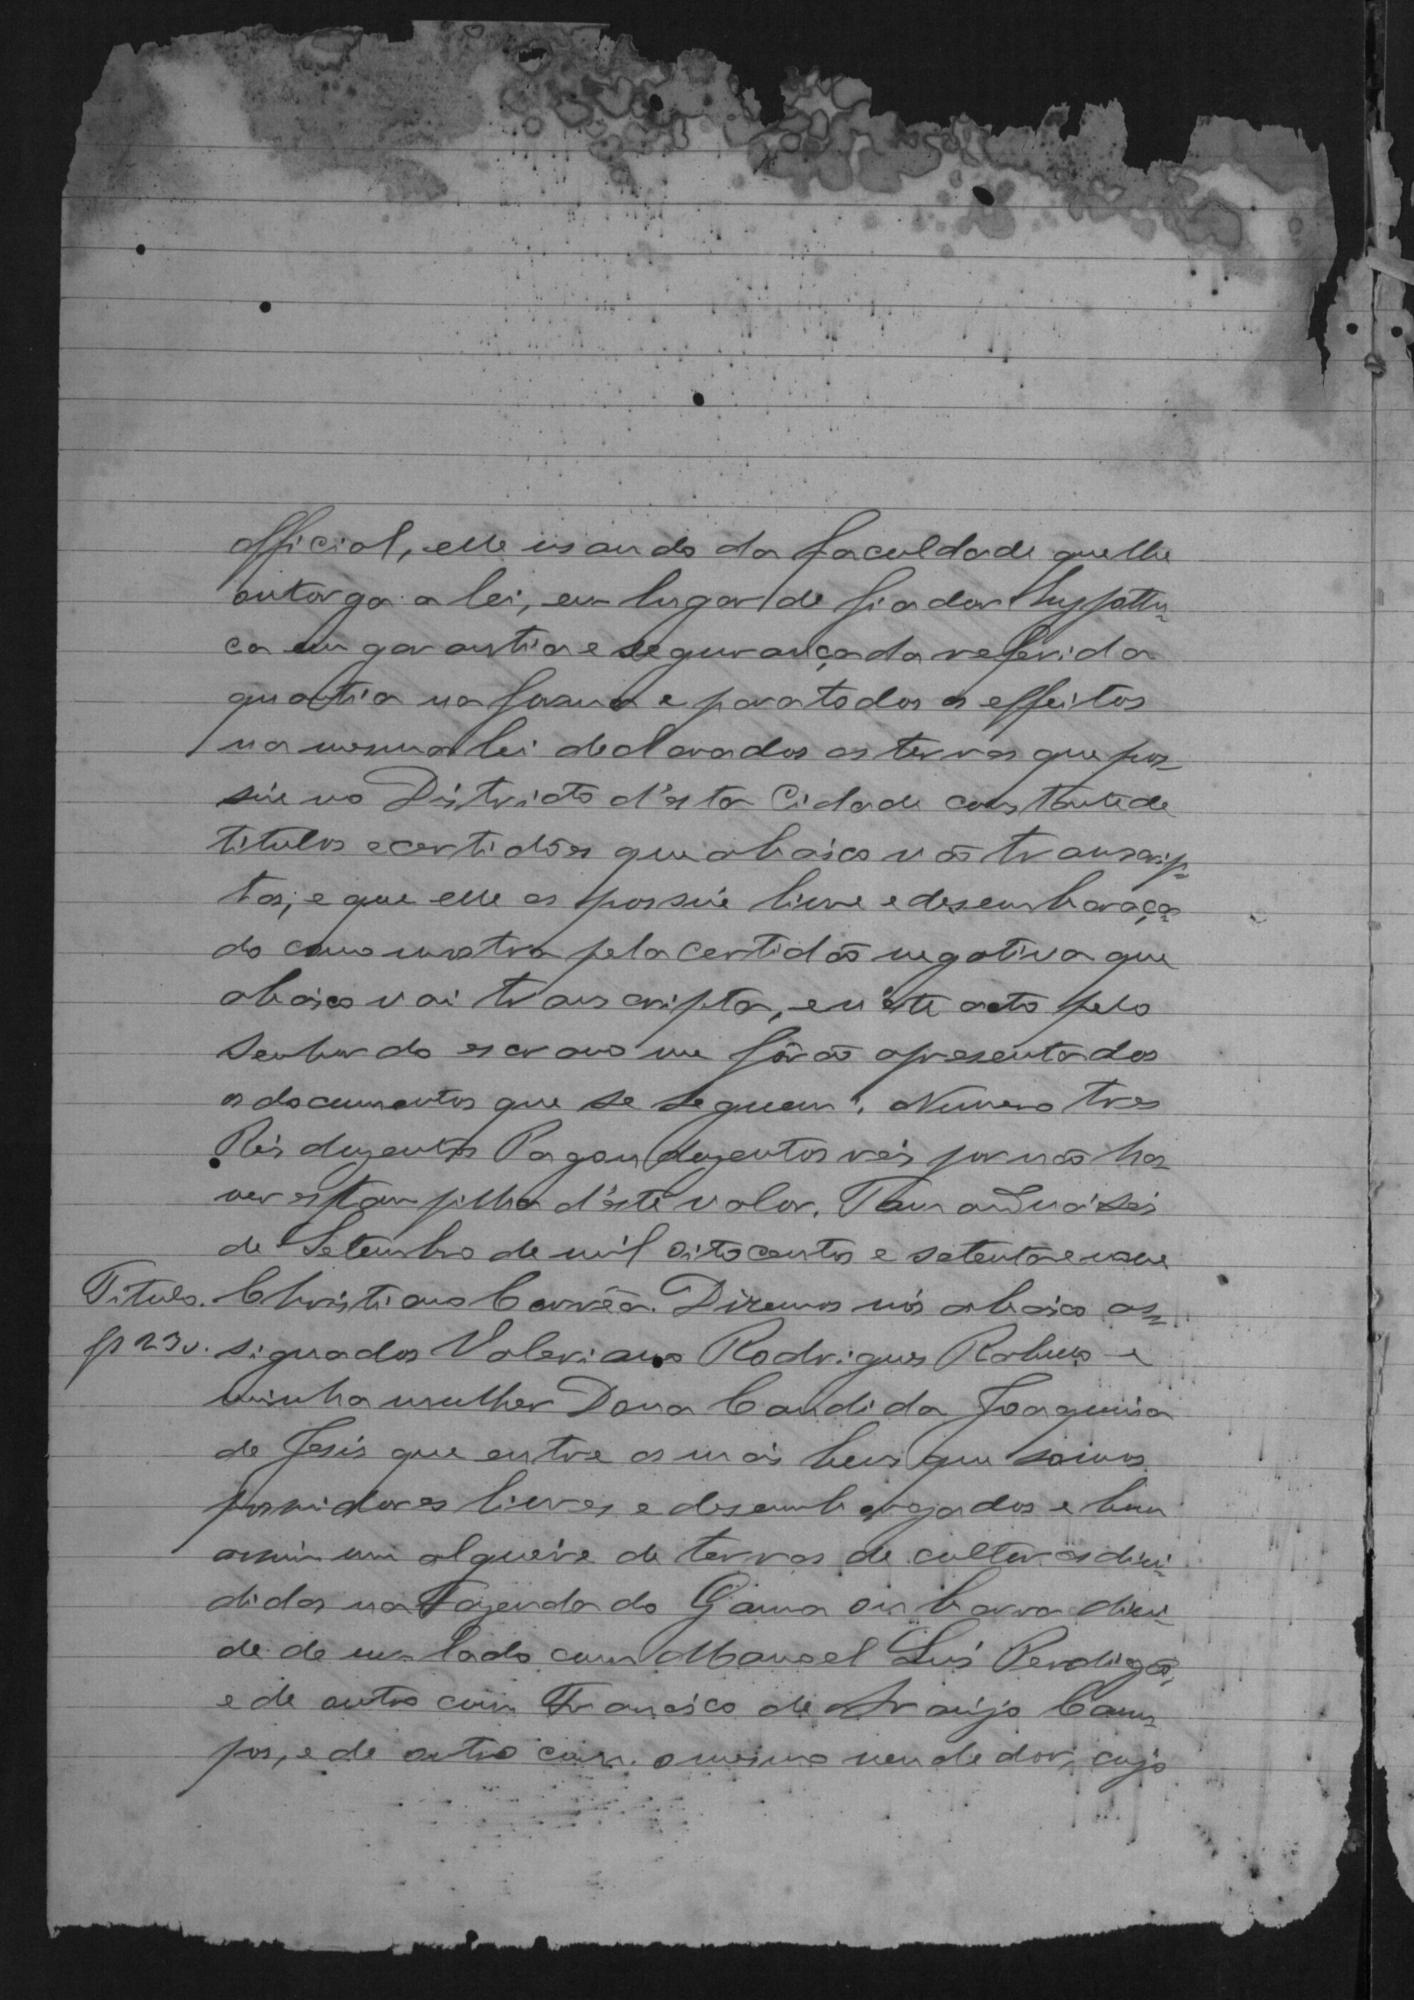 official, elle usando da faculdade que lhe
outorga a lei, em lugar de fiador hypothe=
ca em garantia e segurança da referida
quantia na forma e para todos os effeitos
na mesma lei declarados as terras que pos=
sue no Districto d'esta Cidade constante de
titulos e certidões que abaico vão transcrip=
tos, e que elle as possue livre e desembaraça=
do como mostra pela certidão negativa que
abaico vai transcripta, e n'este acto pelo
Senhor do escravo me fôrão apresentados
os documentos que se seguem: Numero tres
Réis duzentos Pagou duzentos réis por não ha=
ver estampilha d'este valor. Tamanduá seis
de Setembro de mil oito centos e setenta e nove
Titulo. Christiano Corrêa. Dizemos nós abaico as=
fl 23v. signados Valeriano Rodrigues Rabello e
minha mulher Dona Candida Joaquina
de Jesús que entre os mais bens que somos
possuidores livres e desembargados e bem
assim um alqueire de terras de culturas divi=
didas na Fazenda do Gama ou barra divi=
de de um lado com Manoel Luis Perdigão,
e de outro com Francisco de Araújo Cam=
pos, e de outro com o mesmo vendedor, cujo